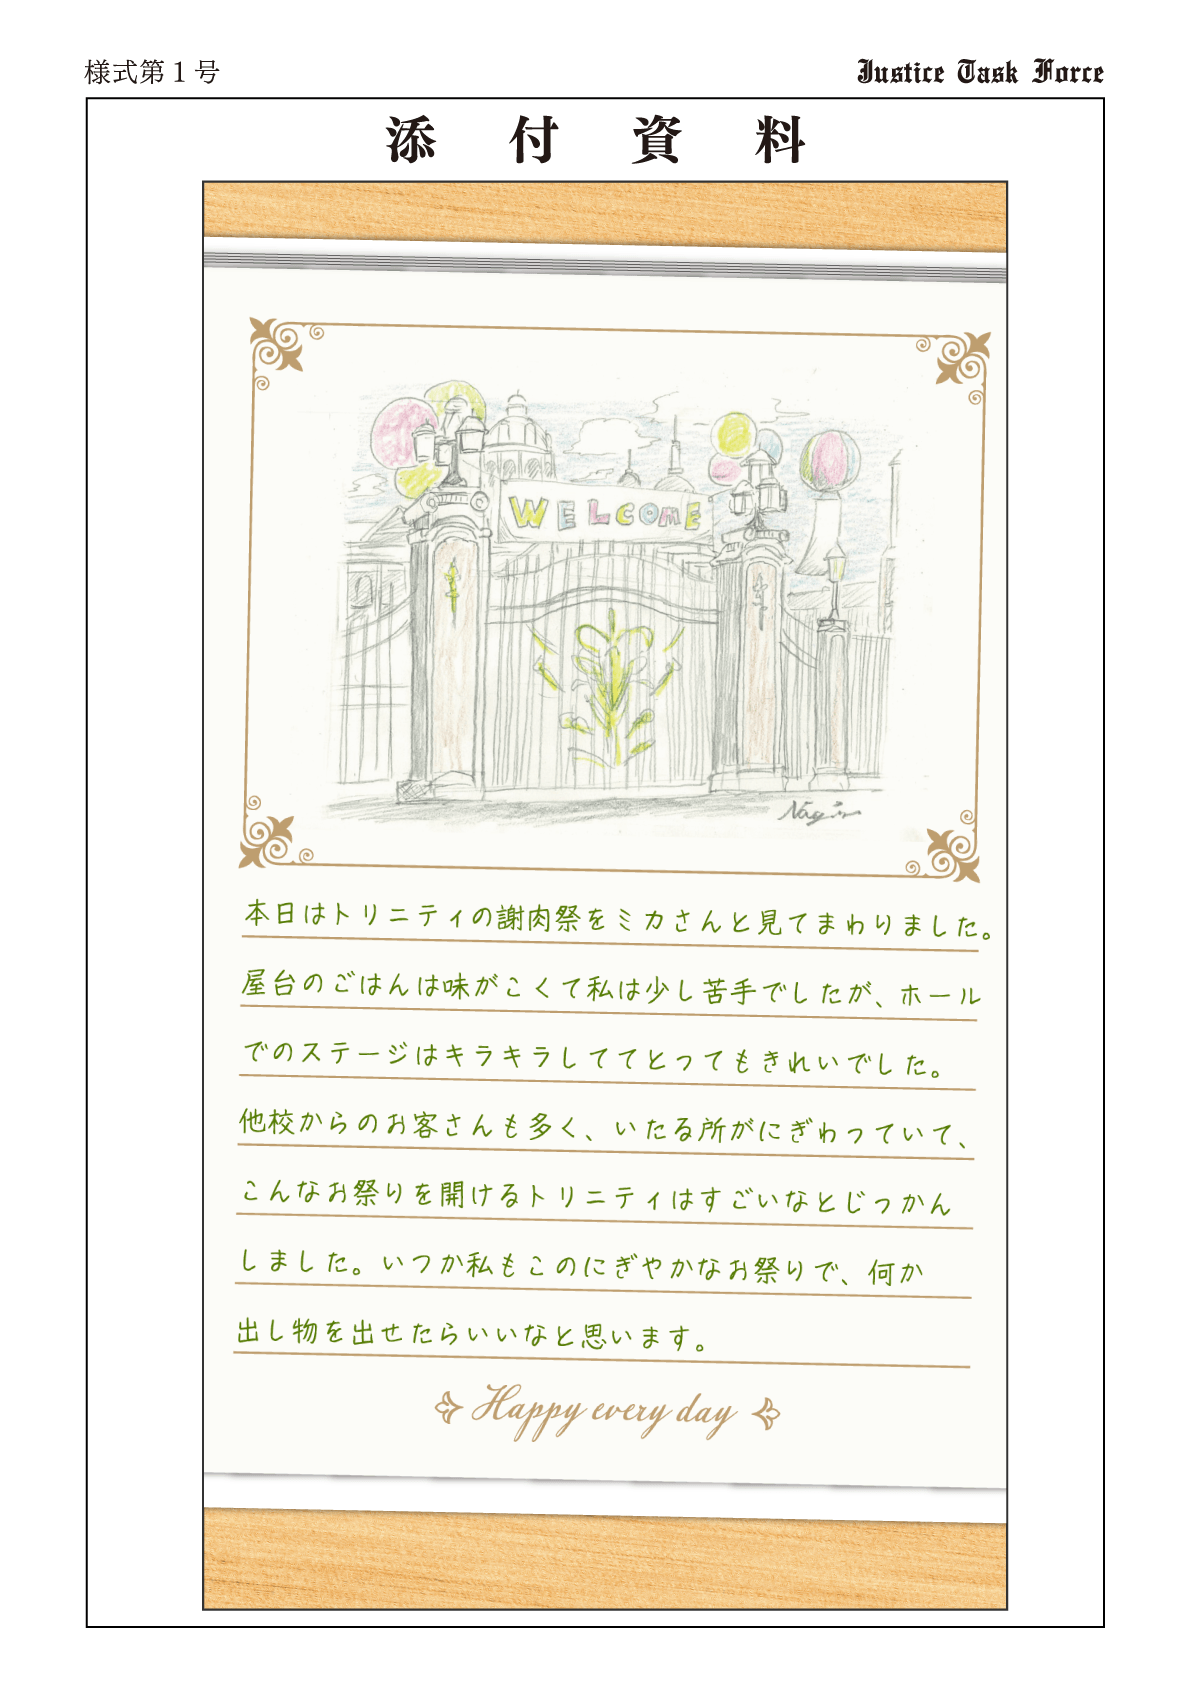 様式第1号
Justice Task Force
添付資料
WELCOME
本日はトリニティの謝肉祭をミカさんと見てまわりました。
屋台のごはんは味がこくて私は少し苦手でしたが、ホール
でのステージはキラキラしててとってもきれいでした。
他校からのお客さんも多く、いたる所がにぎわっていて、
こんなお祭りを開けるトリニティはすごいなとじっかん
しました。いつか私もこのにぎやかなお祭りで、何か
出し物を出せたらいいなと思います。
Happy every day